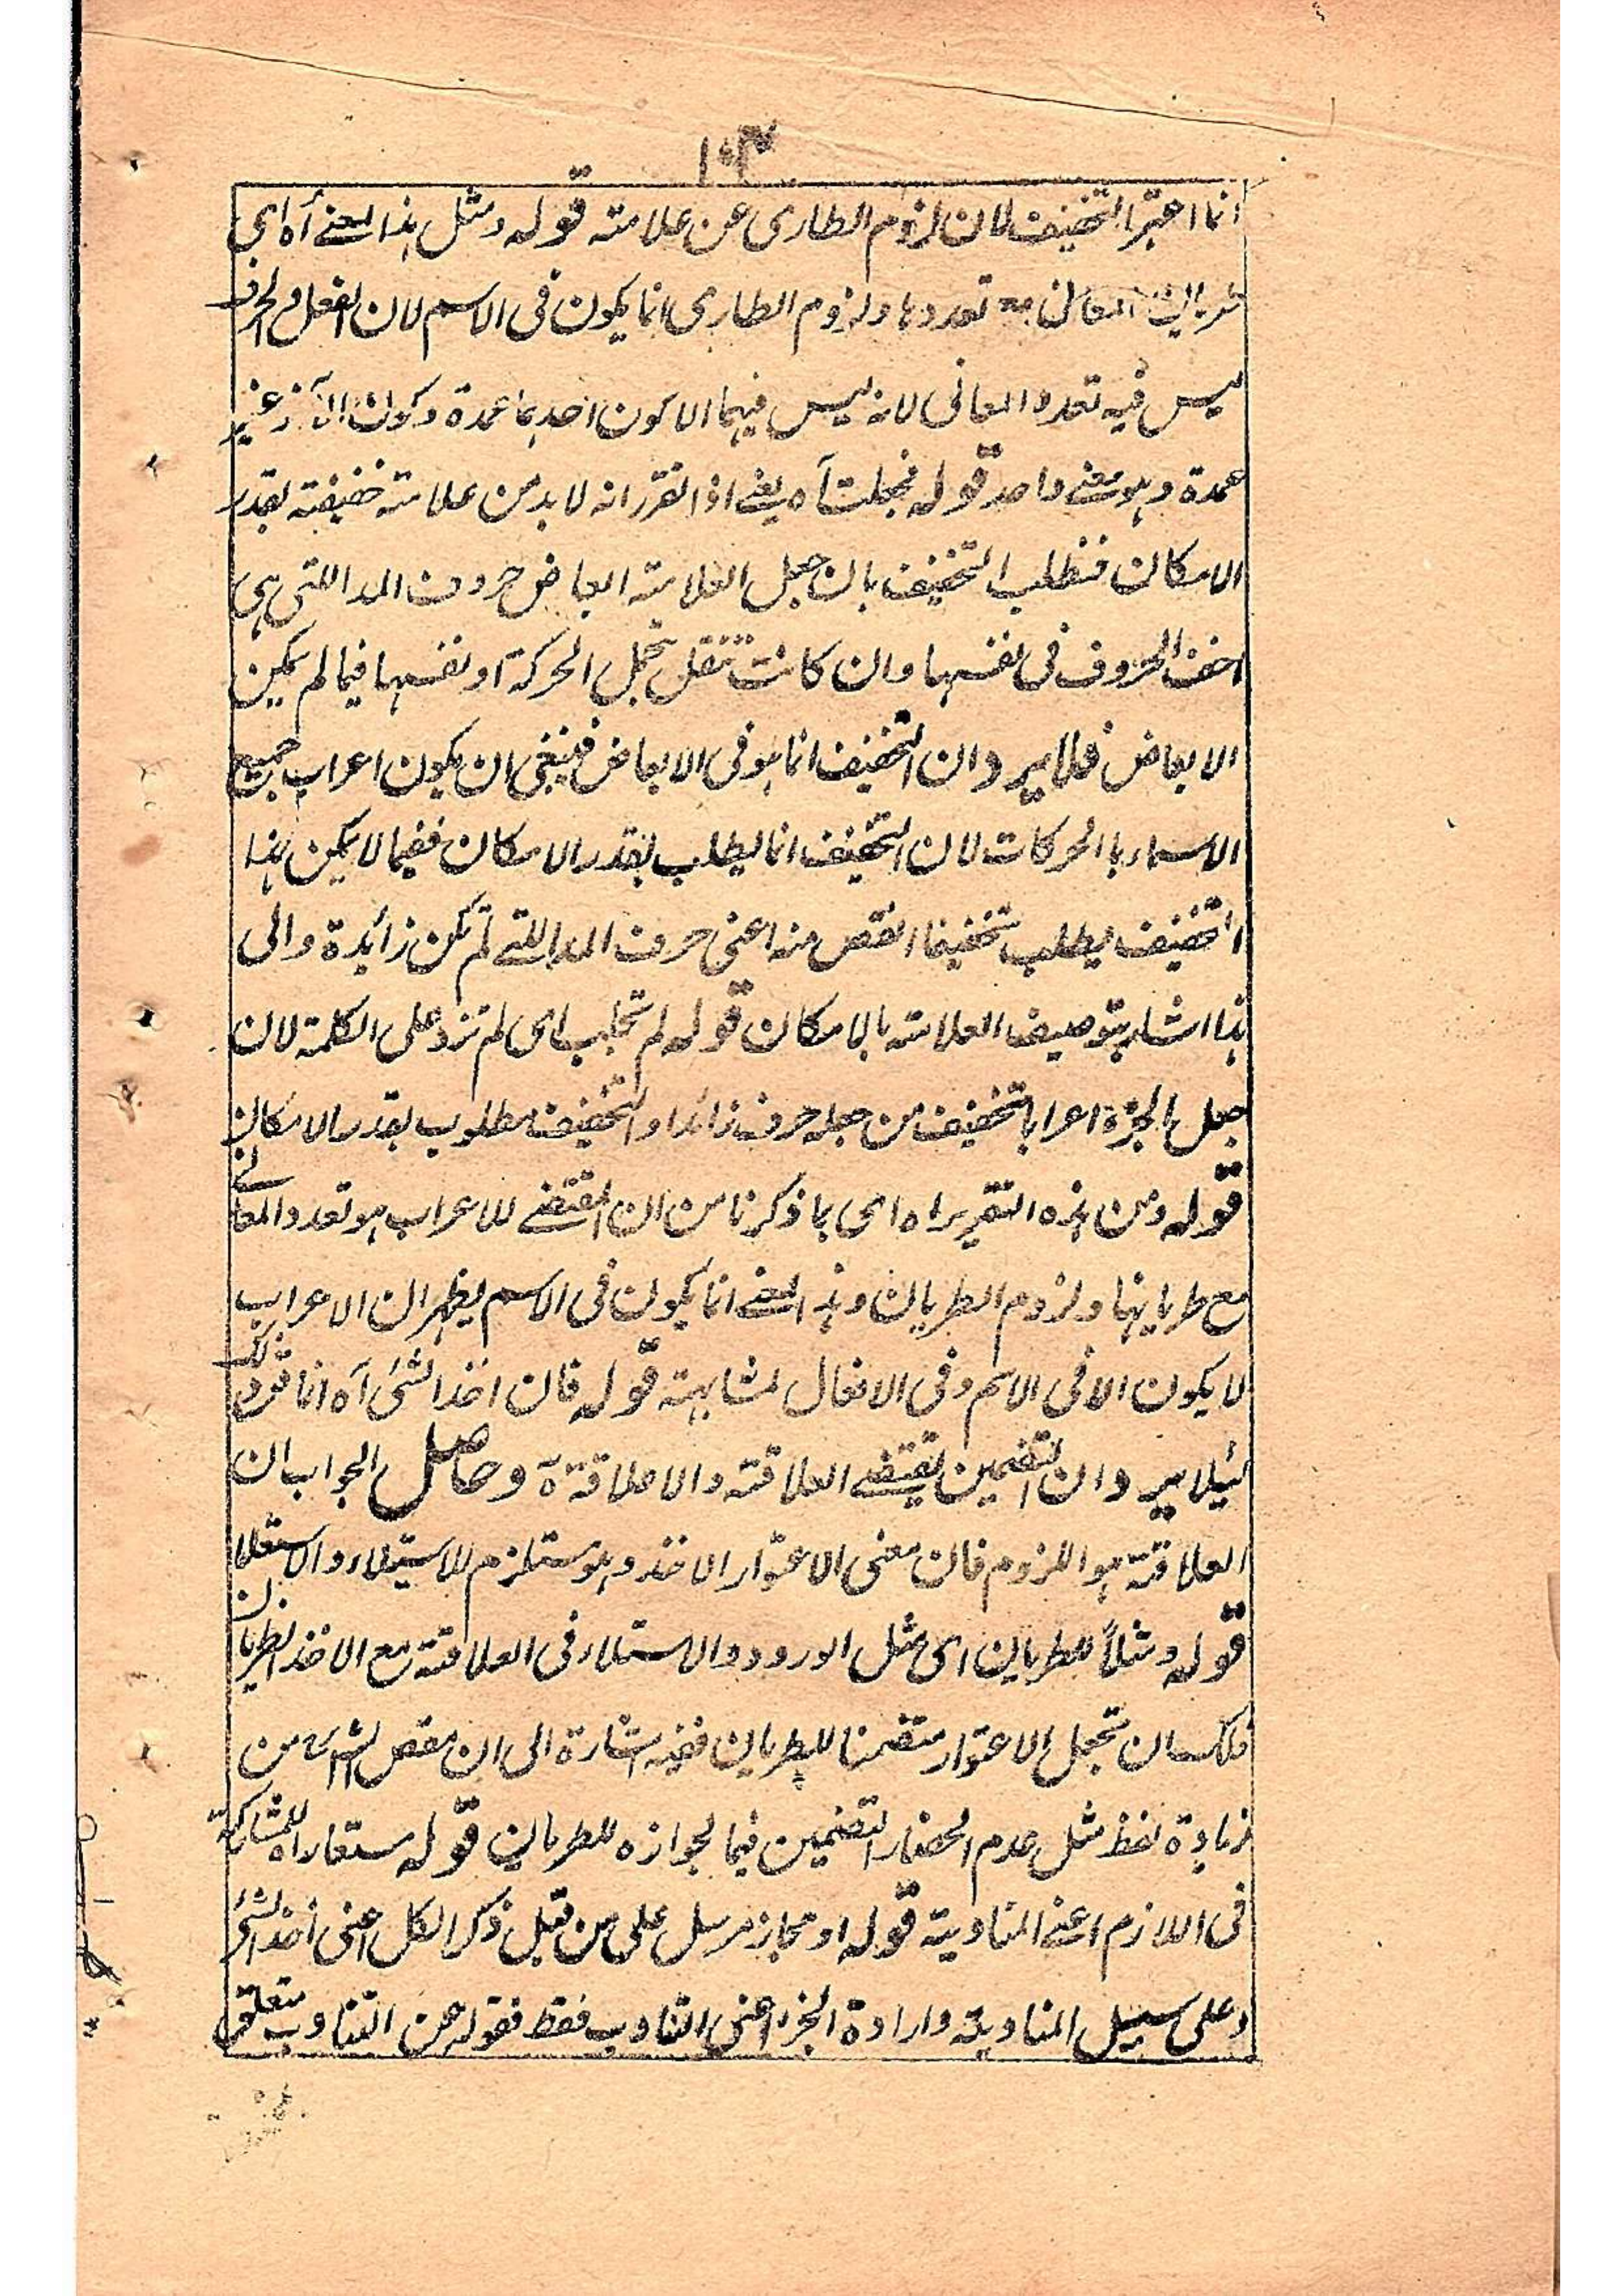 ١٠٣
انما اعتبر التخفيف لان لزوم الطارى عن علامته قوله ومثل هذا المعنے آه اى
طريان المعانى مع تعددها ولزوم الطارى انما يكون فى الاسم لان الفعل والحرف
ليس فيه تعدد المعانى لانه ليس فيهما الا كون احدهما عمدة وكون الآخر غير
عمدة وهو معنے واحد قوله فجعلت آه يعنے اذا تقرر انه لا بد من علامته خفيفته بقدر
الامكان فنطلب التخفيف بان جعل العلامته ابعاض حروف المد اللتى هى
اخف الحروف فى نفسها وان كانت تثقل بتحمل الحركة او نفسها فيما لم يمكن
الابعاض فلا يرد ان التخفيف انما هو فى الابعاض فينبغى ان يكون اعراب جميع
الاسماء باالحركات لان التخفيف انما يطلب بقدر الامكان ففيما لا يمكن هذا
التخفيف يطلب تخفيفا انقص منه اعنى حروف المد اللتے لم تكن زائدة والى
هذا اشار بتوصيف العلامته بالامكان قوله لم تجلب اى لم تزد على الكلمة لان
جعل الجزء اعرابا تخفيف من جعله حرف زائدا والتخفيف مطلوب بقدر الامكان
قوله ومن هذه التقرير اه اى بما ذكرنا من ان المقتضے للاعراب هو تعدد المعانے
مع طريانها ولزوم الطريان وهذا المعنے انما يكون فى الاسم يظهر ان الاعراب
لا يكون الا فى الاسم وفى الافعال لمشابهته قوله فان اخذ الشئ آه انما قرر ذلك
لئيلا يرد ان التضمين يقتضے العلاقته ولا علاقة ة وحاصل الجواب ان
العلاقته هو اللزوم فان معنى الاعتوار الاخذ وهو مستلزم للاستيلاء والاستعلا
قوله ومثلاً للطريان اى مثل الورود والاستلاء فى العلاقته مع الاخذ الطريان
فلك ان تجعل الاعتوار متضمنا للطريان ففيه اشارة الى ان مقص الشئ من
زيادة لفظ مثل عدم انحصار التضمين فيما لجوازه للطريان قوله مستعار اه للمشاركة
فى اللازم اعنے المناوبة قوله او مجاز مرسل على من قبل ذكر الكل اعنى اخذ الشئ
وعلى سبيل المناوبة وارادة الجزء اعنى التناوب فقط فقوله عن التناوب متعلق